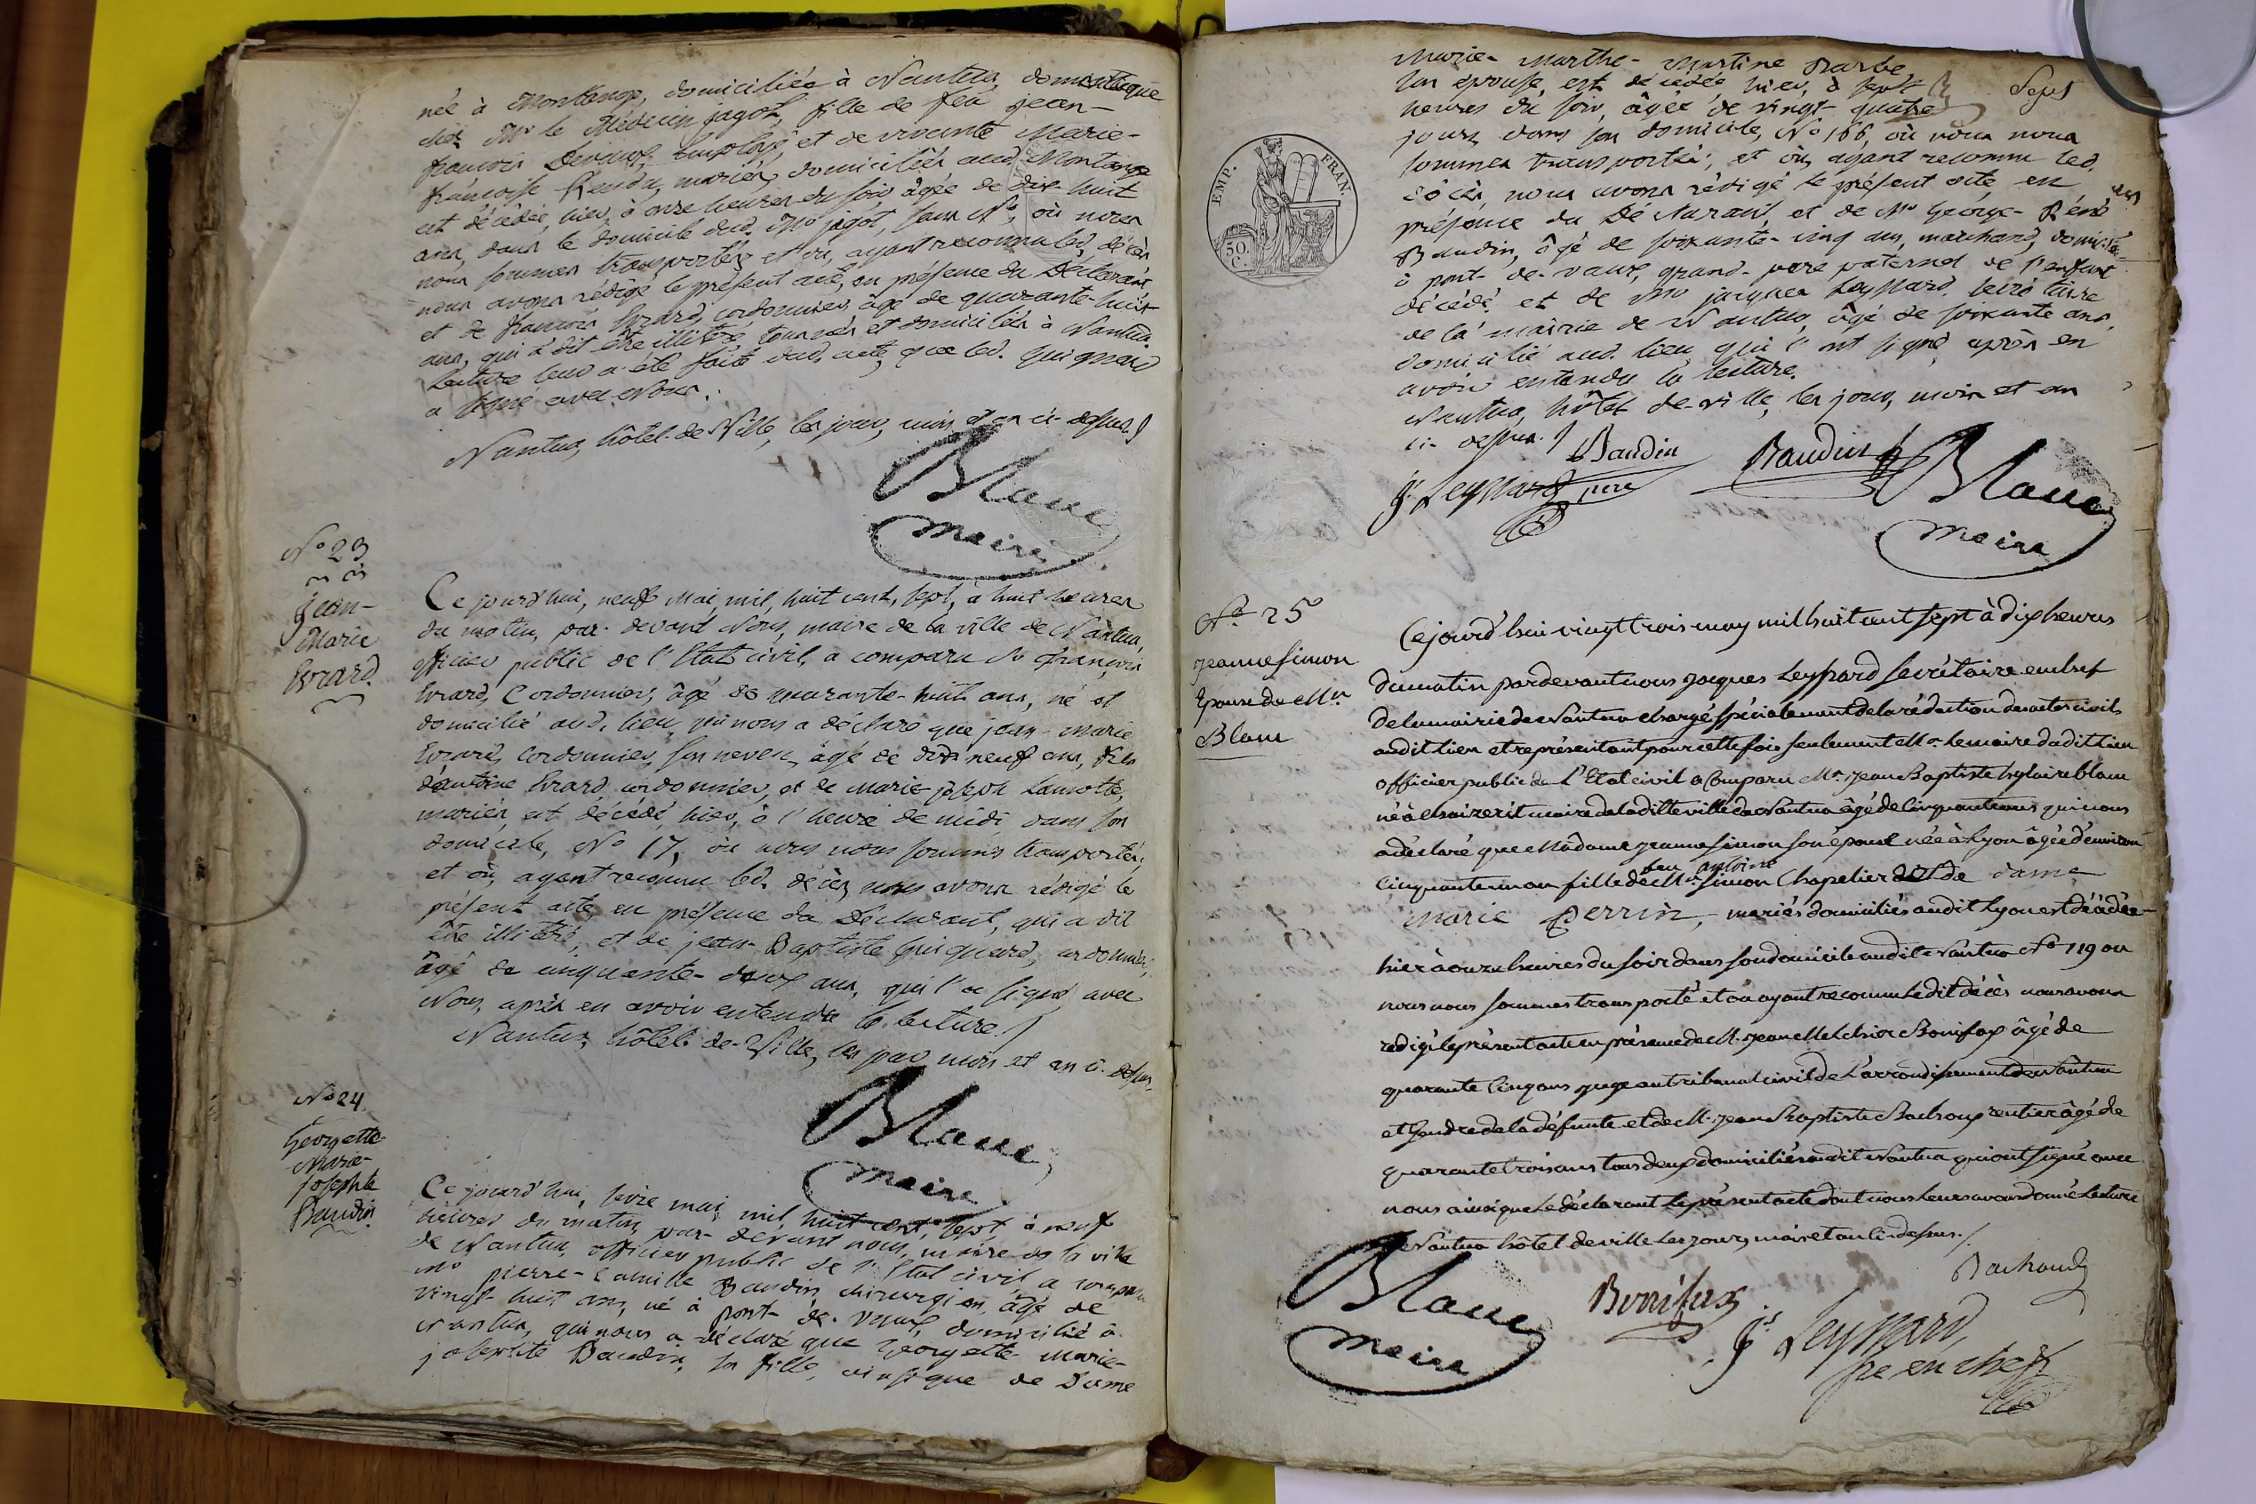 née à Montange, domiciliée à Nantua, domestique
chez Mr le Médecin jagot, fille de feu jean-
françois employé et de vivante Marie-
françoise Rendu, mariés, domiciliés aud. Montange
est décédée, hier, à onze heures du soir, âgée de dix huit
ans, dans le domicile dud. Mr jagot, sans No, où nous
nous sommes transportés et où, ayant reconnu led. décès
nous avons rédigé le présent acte, en présence du Déclarant
et de françois Evrard, cordonnier, âgé de quarante-huit
ans, qui a dit être illitéré, tous nés et domiciliés à Nantua.
Lecture leur a été faite dud. acte, que led. Guiguard
a signé avec Nous.
Nantua, hôtel-de-Ville, les jour, mois et an ci-dessus.
Blanc
maire
No 23
Jean-
Marie
Evrard.
Ce jourd'hui, neuf mai, mil, huit cent, sept, à huit heures
du matin, par-devant Nous, maire de la ville de Nantua,
officier public de l'Etat civil, a comparu Sr françois
Evrard, Cordonnier, âgé de quarante-huit ans, né et
domicilié aud. lieu, qui nous a déclaré que jean-marie
Evrard, cordonnier, son neveu, âgé de dix neuf ans, fils
d'antoine Evrard, cordonnier, et de Marie joseph Lamotte,
mariés, est décédé, hier, à l'heure de midi, dans son
domicile, No 17, où nous nous sommes transportés,
et où, ayant reconnu led. décès, nous avons rédigé le
présent acte en présence du Déclarant, qui a dit
être illitéré, et de jean-Baptiste Guiguard, cordonnier,
âgé de cinquante-deux ans, qui l'a signé avec
Nous, après en avoir entendu la lecture.
Nantua, hôtel-de-Ville, les jour, mois et an ci-dessus.
Blanc
maire
No 24
Georgette-
Marie-
Josephte
Baudin.
Ce jourd'hui, seize mai, mil, huit cent, sept, à neuf
heures du matin, par-devant nous, maire de la ville
de Nantua, officier public de l'Etat civil, a comparu
Mr pierre-Camille Baudin, chirurgien, âgé de
vingt huit ans, né à pont-de-Vaux, domicilié à
Nantua, qui nous a déclaré que Georgette-Marie-
josephte Baudin, sa fille, ainsi que de Dame
Sept
Marie-Marthe-Martine Barbe
son épouse, est décédée hier, à sept
heures du soir, âgée de vingt-quatre
jours, dans son domicile, No 166, où nous nous
sommes transportés, et où, ayant reconnu led.
décès, nous avons rédigé le présent acte en
présence du Déclarant, et de Mr George-Réné
Baudin, âgé de soixante-cinq ans, marchand, domicilié
à pont-de-vaux, grand-père paternel de l'enfant
décédé et de Mr jacques Leyssard, secrétaire
de la mairie de Nantua, âgé de soixante ans,
domicilié aud. lieu, qui l'ont signé, après en
avoir entendu la lecture.
Nantua, hôtel-de-ville, les jour, mois et an
ci-dessus.
EMP. FRAN.
50 C.
Baudin
Baudin
js Leyssard
père
Blanc
maire
No 25
Jeanne Simon
Epouse de Mr
Blanc
Cejourd'hui vingt trois may mil huit cent sept à dix heures
du matin pardevant nous Jacques Leyssard Secrétaire en chef
de la mairie de Nantua chargé spécialement de la rédaction des actes civils
audit lieu et représentant pour cette fois seulement Mr le maire dudit lieu
officier public de l'Etat civil a Comparu Mr Jean Baptiste hylaire blanc
né à maire de la ditte ville de Nantua âgé de Cinquante ans qui nous
a déclaré que Madame Jeanne Simon son épouse née à Lyon âgée d'environ
Cinquante un an fille de feu Mr antoine Simon Chapelier et de dame
Marie Perrin, mariés domiciliés audit Lyon est décédée
hier à onze heures du soir dans son domicile audit Nantua No 119 où
nous nous sommes transporté et où ayant reconnu ledit décès nous avons
rédigé le présent acte en présence de M. Jean Melchior Bonifax âgé de
quarante Cinq ans juge au tribunal civil de l'arrondissement de Nantua
et Gendre de la défunte et de M. Jean Baptiste Bachoud rentier âgé de
quarante trois ans tous deux domiciliés audit Nantua qui ont signé avec
nous ainsi que le déclarant le présent acte dont nous leurs avons donné lecture
Nantua hôtel de ville les jour, mois et an ci-dessus.
Bachoud
Blanc
maire
Bonifax
js Leyssard,
sre en chef